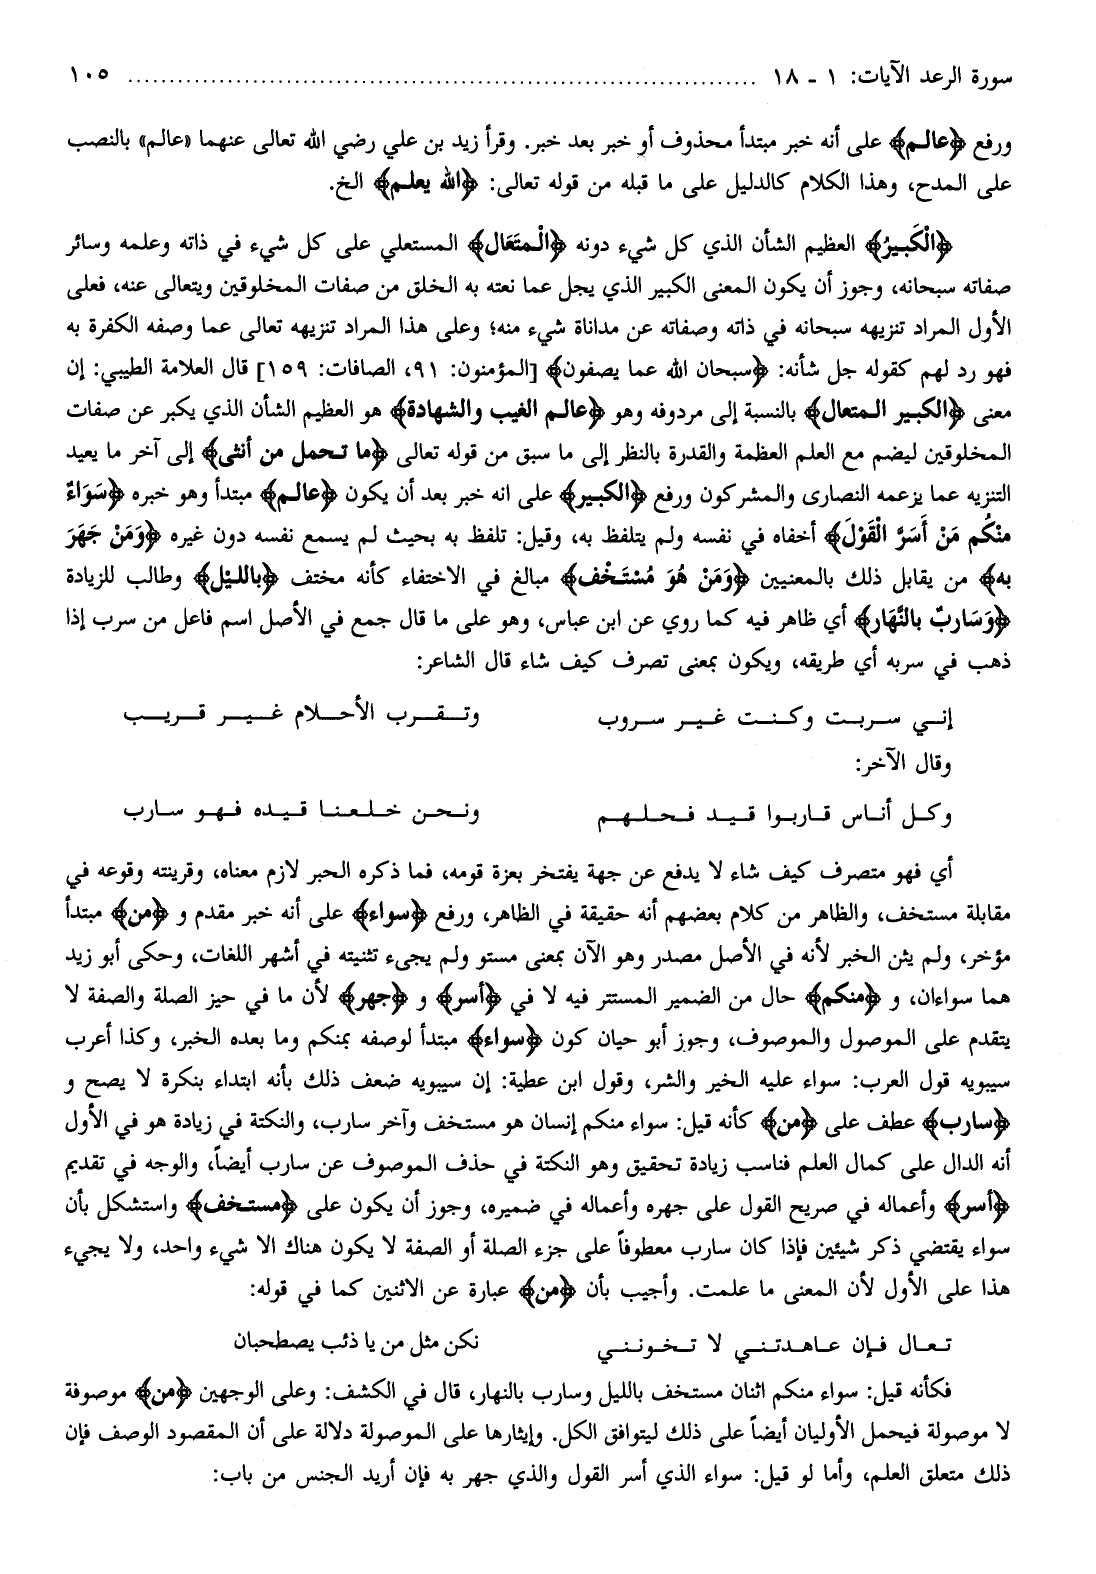 سورة الرعد الآيات: ١ - ١٨ ........................................................................ ١٠٥
ورفع ﴿عالم﴾ على أنه خبر مبتدأ محذوف أو خبر بعد خبر. وقرأ زيد بن علي رضي الله تعالى عنهما «عالم» بالنصب
على المدح، وهذا الكلام كالدليل على ما قبله من قوله تعالى: ﴿الله يعلم﴾ الخ.
﴿الْكَبِيرُ﴾ العظيم الشأن الذي كل شيء دونه ﴿الْمتَعَال﴾ المستعلي على كل شيء في ذاته وعلمه وسائر
صفاته سبحانه، وجوز أن يكون المعنى الكبير الذي يجل عما نعته به الخلق من صفات المخلوقين ويتعالى عنه، فعلى
الأول المراد تنزيهه سبحانه في ذاته وصفاته عن مداناة شيء منه؛ وعلى هذا المراد تنزيهه تعالى عما وصفه الكفرة به
فهو رد لهم كقوله جل شأنه: ﴿سبحان الله عما يصفون﴾ [المؤمنون: ٩١، الصافات: ١٥٩] قال العلامة الطيبي: إن
معنى ﴿الكبير المتعال﴾ بالنسبة إلى مردوفه وهو ﴿عالم الغيب والشهادة﴾ هو العظيم الشأن الذي يكبر عن صفات
المخلوقين ليضم مع العلم العظمة والقدرة بالنظر إلى ما سبق من قوله تعالى ﴿ما تحمل من أنثى﴾ إلى آخر ما يعيد
التنزيه عما يزعمه النصارى والمشركون ورفع ﴿الكبير﴾ على انه خبر بعد أن يكون ﴿عالم﴾ مبتدأ وهو خبره ﴿سَوَاءٌ
منْكُم مَنْ أَسَرَّ الْقَوْلَ﴾ أخفاه في نفسه ولم يتلفظ به، وقيل: تلفظ به بحيث لم يسمع نفسه دون غيره ﴿وَمَنْ جَهَرَ
به﴾ من يقابل ذلك بالمعنيين ﴿وَمَنْ هُوَ مُسْتَخْف﴾ مبالغ في الاختفاء كأنه مختف ﴿بالليْل﴾ وطالب للزيادة
﴿وَسَاربٌ بالنَّهَار﴾ أي ظاهر فيه كما روي عن ابن عباس، وهو على ما قال جمع في الأصل اسم فاعل من سرب إذا
ذهب في سربه أي طريقه، ويكون بمعنى تصرف كيف شاء قال الشاعر:
إني سربت وكنت غير سروب وتقرب الأحلام غير قريب
وقال الآخر:
وكل أناس قاربوا قيد فحلهم ونحن خلعنا قيده فهو سارب
أي فهو متصرف كيف شاء لا يدفع عن جهة يفتخر بعزة قومه، فما ذكره الحبر لازم معناه، وقرينته وقوعه في
مقابلة مستخف، والظاهر من كلام بعضهم أنه حقيقة في الظاهر، ورفع ﴿سواء﴾ على أنه خبر مقدم و ﴿من﴾ مبتدأ
مؤخر، ولم يثن الخبر لأنه في الأصل مصدر وهو الآن بمعنى مستو ولم يجىء تثنيته في أشهر اللغات، وحكى أبو زيد
هما سواءان، و ﴿منكم﴾ حال من الضمير المستتر فيه لا في ﴿أسر﴾ و ﴿جهر﴾ لأن ما في حيز الصلة والصفة لا
يتقدم على الموصول والموصوف، وجوز أبو حيان كون ﴿سواء﴾ مبتدأ لوصفه بمنكم وما بعده الخبر، وكذا أعرب
سيبويه قول العرب: سواء عليه الخير والشر، وقول ابن عطية: إن سيبويه ضعف ذلك بأنه ابتداء بنكرة لا يصح و
﴿سارب﴾ عطف على ﴿من﴾ كأنه قيل: سواء منكم إنسان هو مستخف وآخر سارب، والنكتة في زيادة هو في الأول
أنه الدال على كمال العلم فناسب زيادة تحقيق وهو النكتة في حذف الموصوف عن سارب أيضاً، والوجه في تقديم
﴿أسر﴾ وأعماله في صريح القول على جهره وأعماله في ضميره، وجوز أن يكون على ﴿مستخف﴾ واستشكل بأن
سواء يقتضي ذكر شيئين فإذا كان سارب معطوفاً على جزء الصلة أو الصفة لا يكون هناك الا شيء واحد، ولا يجيء
هذا على الأول لأن المعنى ما علمت. وأجيب بأن ﴿من﴾ عبارة عن الاثنين كما في قوله:
تعال فإن عاهدتني لا تخونني نكن مثل من يا ذئب يصطحبان
فكأنه قيل: سواء منكم اثنان مستخف بالليل وسارب بالنهار، قال في الكشف: وعلى الوجهين ﴿من﴾ موصوفة
لا موصولة فيحمل الأوليان أيضاً على ذلك ليتوافق الكل. وإيثارها على الموصولة دلالة على أن المقصود الوصف فإن
ذلك متعلق العلم، وأما لو قيل: سواء الذي أسر القول والذي جهر به فإن أريد الجنس من باب: